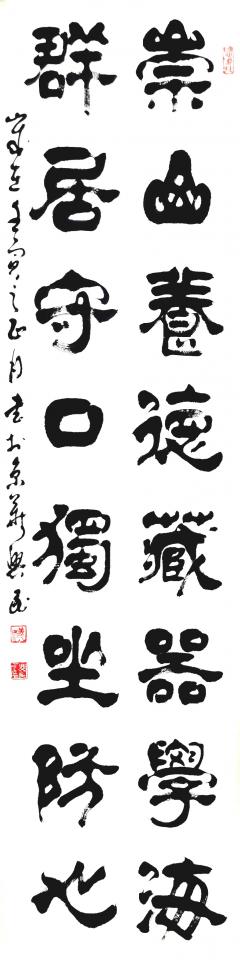 崇山養德藏器學海
群居守口獨坐防心
歲在壬寅之正月書於京華興民